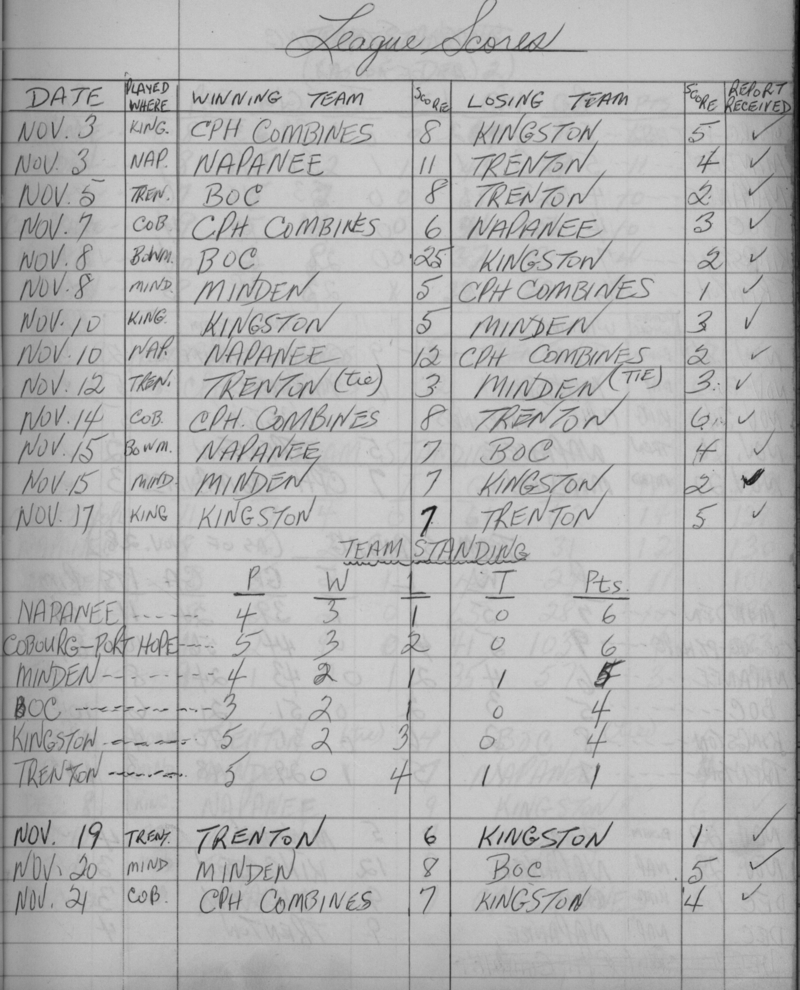 League Scores
DATE PLAYED WHERE WINNING TEAM SCORE LOSING TEAM SCORE REPORT RECEIVED
NOV. 3 KING. CPH COMBINES 8 KINGSTON 5 ✓
NOV. 3 NAP. NAPANEE 11 TRENTON 4 ✓
NOV. 5 TREN. BOC 8 TRENTON 2 ✓
NOV. 7 COB. CPH COMBINES 6 NAPANEE 3 ✓
NOV. 8 BOWM. BOC 25 KINGSTON 2 ✓
NOV. 8 MIND. MINDEN 5 CPH COMBINES 1 ✓
NOV. 10 KING. KINGSTON 5 MINDEN 3 ✓
NOV. 10 NAP. NAPANEE 12 CPH COMBINES 2 ✓
NOV. 12 TREN. TRENTON (TIE) 3 MINDEN (TIE) 3 ✓
NOV. 14 COB. CPH. COMBINES 8 TRENTON 6 ✓
NOV. 15 BOWM. NAPANEE 7 BOC 4 ✓
NOV. 15 MIND. MINDEN 7 KINGSTON 2 ✓
NOV. 17 KING KINGSTON 7 TRENTON 5 ✓
TEAM STANDING
P W L T Pts.
NAPANEE ----- 4 3 1 0 6
COBOURG-PORT HOPE ---- 5 3 2 0 6
MINDEN -------- 4 2 1 1 5
BOC ---------- 3 2 1 0 4
KINGSTON -------- 5 2 3 0 4
TRENTON -------- 5 0 4 1 1
NOV. 19 TRENT. TRENTON 6 KINGSTON 1 ✓
NOV. 20 MIND MINDEN 8 BOC 5 ✓
NOV. 21 COB. CPH COMBINES 7 KINGSTON 4 ✓